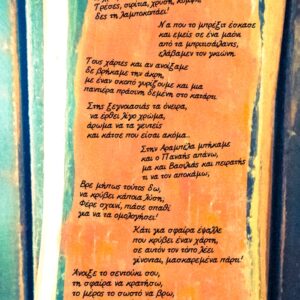 Τρέσες, σιρίτια, χρυσή, κορμί
δες τη λαμποκοπάει!
Να που το μπρίξει έσκασε
και εμείς σε ένα μαόνι
από τα μπριτσιόλανες,
ελάβαμεν τον γκιώνη.
Τους χάρτες και αν ανοίξαμε
δε βρήκαμε την άκρη,
με έναν σκοπό γυρίζουμε και μια
παντιέρα πράσινη δεμένη στο κατάρτι.
Στης ξεγνοιασιάς τα όνειρα,
να έρθει λίγο χρώμα,
άρωμα να τα γευτείς
και κάτσε που είσαι ακόμα..
Στην Αραμπέλα μπήκαμε
και ο Παναής απάνω,
μα και Βασιλιάς και πειρατής
τι να τον αποκάμω,
Βρε μήπως τούτες δω,
να κρύβει κάποια λύση,
Φέρε σχοινί, πιάσε σπαθί
για να τα ομολογήσει!
Κάτι για σφαίρα έψαλλε
που κρύβει έναν χάρτη,
σε αυτόν τον τόπο λέει
γίνονται, μασκαρεμένα πάρτι!
Άνοιξε το σεντούκι σου,
τη σφαίρα να κρατήσω,
το μέρος το σωστό να βρω,